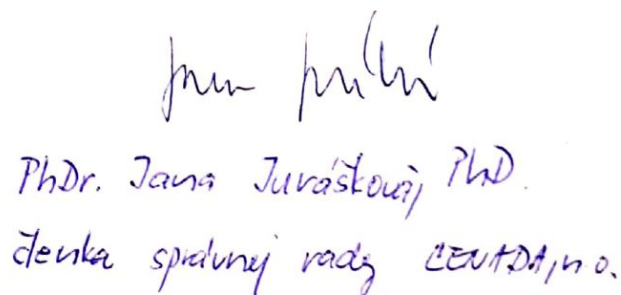 PhDr. Jana Jurášková, PhD.
členka správnej rady CENADA, n.o.